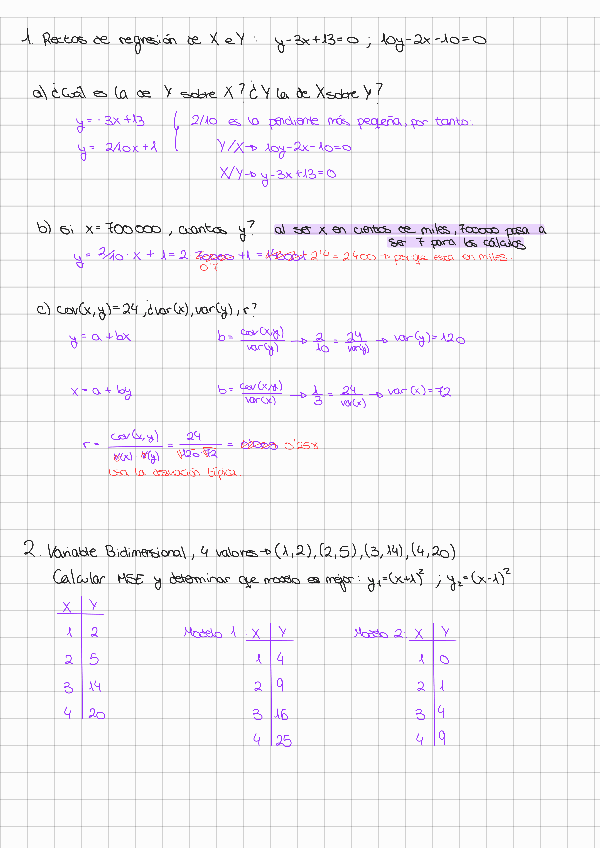 1. Rectas de regresión de X e Y: y-3x+13=0 ; 10y-2x-10=0
a) ¿Cuál es la de Y sobre X? ¿Y la de X sobre Y?
y=-3x+13 2/10 es la pendiente más pequeña, por tanto.
y= 2/10x+1 Y/X→ 10y-2x-10=0
X/Y→ y-3x+13=0
b) si x=700000, cuantos y? al ser x en cientos de miles, 700000 pasa a
ser 7 para los cálculos
y= 2/10·x+1=2 +1= 2'4 = 2400 porque esta en miles.
0'7
c) cov(x,y)=24, ¿var(x), var(y), r?
y=a+bx b= cov(x,y)/var(y) → 2/10 = 24/var(y) → var(y)=120
x=a+by b= cov(x,y)/var(x) → 1/3 = 24/var(x) → var(x)=72
r= cov(x,y)/v(x) v(y) = 24/120·72 = 0'258
usa la desviación típica.
2. Variable Bidimensional, 4 valores→(1,2),(2,5),(3,14),(4,20)
Calcular MSE y determinar que modelo es mejor: y₁=(x+1)² ; y₂=(x-1)²
X Y
1 2 Modelo 1 X Y Modelo 2: X Y
2 5 1 4 1 0
3 14 2 9 2 1
4 20 3 16 3 4
4 25 4 9